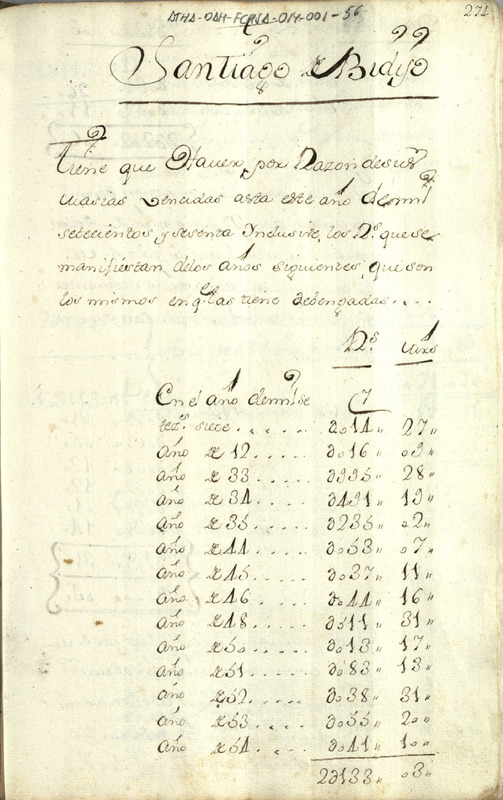 ATHA-DAH-FCPNA-OM-001-56
274
Santiago de Bidijo
Tiene que Haver, por Razon de sus
vtuarias vencidas asta este año de mil
setecientos, y sesenta Inclusive, los Rs. que se
manifiestan de los años siguientes, que son
los mismos en q.e las tiene debengadas....
Rs. mrs
En el año de mil se
tezs. siete..... do14" 27"
año de 12..... do16" o9"
año de 33..... d995" 28"
año de 34..... d491" 19"
año de 35..... d235" o2"
año de 44..... do53" o7"
año de 45..... do37" 11"
año de 46..... do44" 16"
año de 48..... d511" 31"
año de 50..... do13" 17"
año de 51..... do83" 13"
año de 52..... do38" 31"
año de 53..... do55" 20"
año de 54..... do41" 10"
2d133" o3"